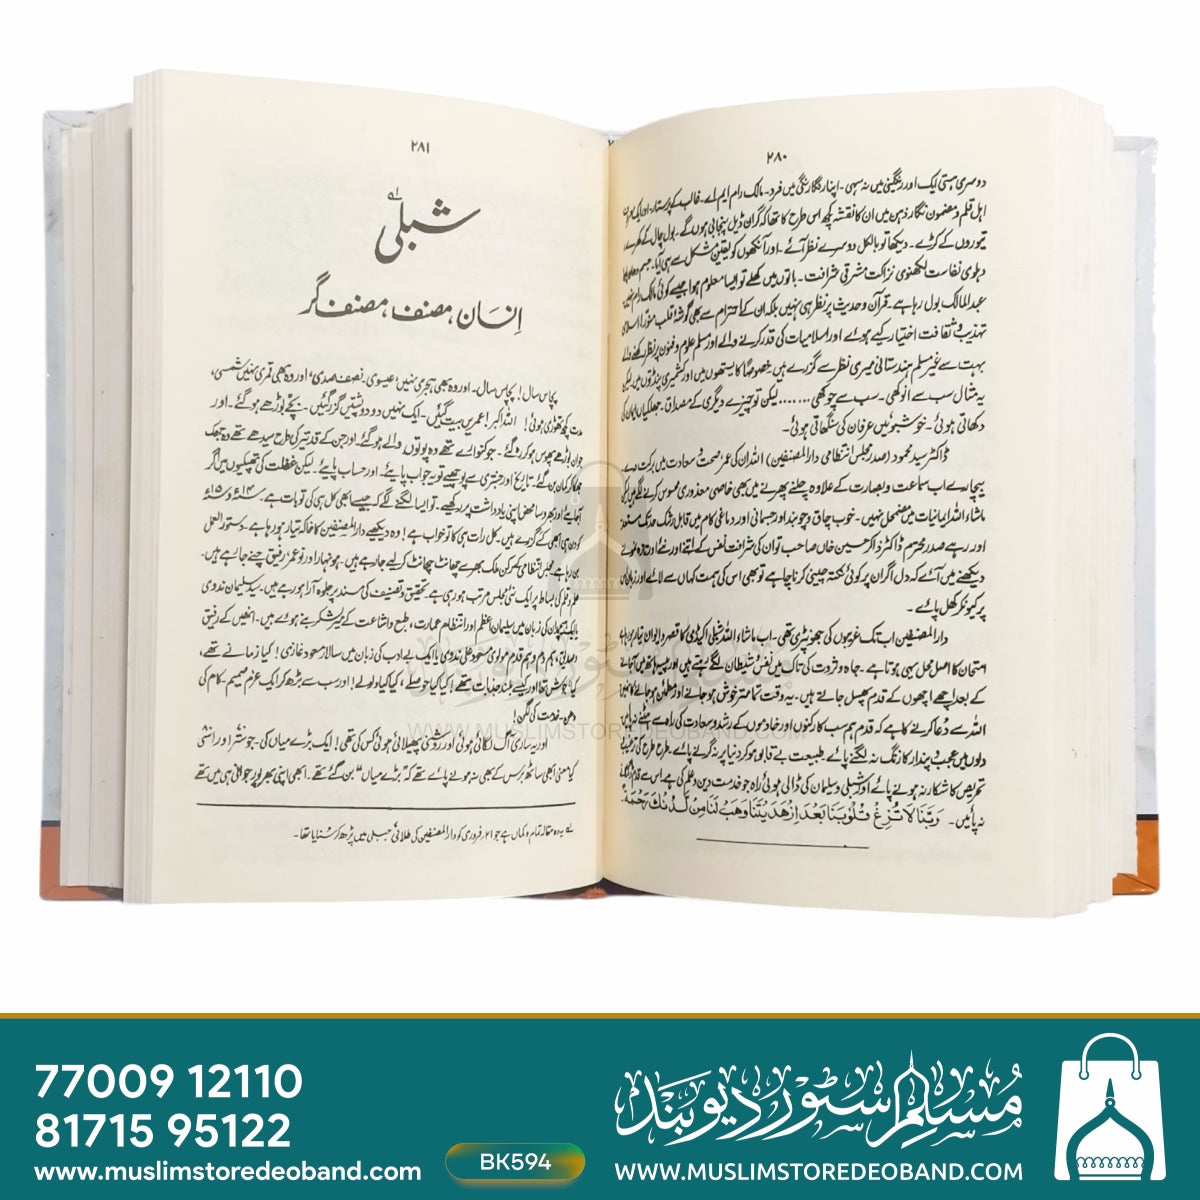 ۲۸۰
دوسری ہستی ایک اور رنگینی میں نہ سہی۔ اپنا رنگا رنگی میں فرد۔ مالک رام ایم اے۔ غالب کے پرستار۔ اور ایک
اہل قلم و مضمون نگار ذہن میں ان کا نقشہ کچھ اس طرح کا تھا کہ گران ڈیل پنجابی ہوں گے۔ بول چال کے
تیوروں کے کرڑے۔ دیکھا تو بالکل دوسرے نظر آئے۔ اور آنکھوں کو یقین مشکل سے ہی آیا۔ جسم
دہلوی نفاست لکھنوی نزاکت مشرقی شرافت۔ باتوں میں کھلے تو ایسا معلوم ہوا جیسے کوئی مالک رام نہیں
عبدالمالک بول رہا ہے۔ قرآن و حدیث پر نظر ہی نہیں بلکہ ان کے احترام سے بھی گوشۂ قلب منور! اسلامی
تہذیب و ثقافت اختیار کیے ہوئے اور اسلامیات کی قدر کرنے والے اور مسلم علوم و فنون پر نظر رکھنے والے
بہت سے غیر مسلم ہندستانی میری نظر سے گزرے ہیں۔ خصوصًا کایستھوں میں اور کشمیری پنڈتوں میں لیکن
یہ مثال سب سے انوکھی۔ سب سے چوکھی ....... لیکن تو چیزے دیگری کے مصداق۔ جھلکیاں ایمان کی
دکھاتی ہوئی۔ خوشبوئیں عرفان کی سنگھاتی ہوئی۔
ڈاکٹر سید محمود (صدر مجلس انتظامی دارالمصنفین) اللہ ان کی عمر صحت و سعادت میں برکت دے۔
بیچارے اب سماعت و بصارت کے علاوہ چلنے پھرنے میں بھی خاصی معذوری محسوس کرنے لگے ہیں لیکن
ماشاء اللہ ایمانیات میں مضمحل نہیں۔ خوب چاق و چوبند اور جسمانی اور دماغی کام میں قابل رشک حد تک مستعد
اور رہے صدر محترم ڈاکٹر ذاکر حسین خاں صاحب تو ان کی شرافت نفس کے اتنے اور نئے اور تازہ نمونے
دیکھنے میں آئے کہ دل اگر ان پر کوئی نکتہ چینی کرنا چاہے تو بھی اس کی ہمت کہاں سے لائے اور زبان اس
پر کیونکر کھل پائے۔
دارالمصنفین اب تک غریبوں کی جھونپڑی تھی۔ اب ماشاء اللہ شبلی اکیڈمی کا قصر و ایوان تیار ہو رہا ہے
امتحان کا اصل محل یہی ہوتا ہے۔ جاہ و ثروت کی تاک میں نفس و شیطان لگے رہتے ہیں اور پیسہ ہاتھ میں آجانے
کے بعد اچھے اچھوں کے قدم پھسل جاتے ہیں۔ یہ وقت تمام تر خوش ہو جانے اور مطمئن ہو جانے کا نہیں
اللہ سے دُعا کرنے کا ہے کہ قدم ہم سب کارکنوں اور خادموں کے رشد و سعادت کی راہ سے ہٹنے نہ پائیں
دلوں میں عجب و پندار کا زنگ نہ لگنے پائے۔ طبیعت بے قابو ہو کر دنیا پر نہ گرنے پائے۔ طرح طرح کی ترغیب
تحریص کا شکار نہ ہونے پائے اور شبلی و سلیمان کی ڈالی ہوئی راہ جو خدمت دین و علم کی ہے اس سے قدم ڈگمگانے
نہ پائیں۔ رَبَّنَا لَا تُزِغْ قُلُوبَنَا بَعْدَ اِذْ هَدَيْتَنَا وَهَبْ لَنَا مِنْ لَّدُنْكَ رَحْمَةً۔
۲۸۱
شبلی ؎۱
انسان، مصنف، مصنف گر
پچاس سال! پچاس سال۔ اور وہ بھی ہجری نہیں، عیسوی۔ نصف صدی، اور وہ بھی قمری نہیں شمسی،
مدت کچھ تھوڑی ہوئی! اللہ اکبر! عمریں بیت گئیں۔ ایک نہیں دو دو پشتیں گزر گئیں۔ بچے بوڑھے ہو گئے۔ اور
جوان بوڑھے پھوس ہو کر رہ گئے۔ جو کنوارے تھے وہ پوتوں والے ہو گئے۔ اور جن کے قد تیر کی طرح سیدھے تھے وہ جھک
جھکا کر کمان بن گئے۔ تاریخ اور جنتری سے پوچھیے تو یہ جواب پایئے۔ اور حساب پایئے۔ لیکن غفلت کی تھپکیوں میں اگر
آجایئے اور بھروسا محض اپنی یادداشت پر رکھیے۔ تو ایسا لگنے لگے کہ جیسے ابھی کل ہی کی تو بات ہے۔ ۱۴ءو ۱۵ء
کو دن ہی ابھی کے گزرے ہیں۔ کل رات ہی کا تو خواب ہے! وہ دیکھیے دارالمصنفین کا خاکہ تیار ہو رہا ہے۔ دستور العمل
بن رہا ہے مجلس انتظامی کے رکن ملک بھر سے چھانٹ چھانٹ کر لیے جا رہے ہیں۔ ہونہار اور نو عمر رفیق چنے جا رہے ہیں۔
علم و فکر کی بساط پر ایک نئی مجلس مرتب ہو رہی ہے۔ تحقیق و تصنیف کی مسند پر جلوہ آرا ہو رہے ہیں۔ سید سلیمان ندوی
یا ایک ہمدان کی زبان میں سلیمان اعظم اور انتظام عمارت، طبع و اشاعت کے میر لشکر بنے ہوئے ہیں۔ انھیں کے رفیق
و صدیق، ہم دم و ہم قدم مولوی مسعود علی ندوی یا ایک بے ادب کی زبان میں سالار مسعود غازی! کیا زمانے تھے،
کیا جوش تھا اور کیسے بلند جذبات تھے! کیا کیا حوصلے، کیا کیا ولولے! اور سب سے بڑھ کر ایک عزم صمیم۔ کام کی
دھن۔ خدمت کی لگن!
اور یہ ساری آگ لگائی ہوئی اور روشنی پھیلائی ہوئی کس کی تھی! ایک بڑے میاں کی۔ جو ستر اور اسّی ۸۰
کیا معنی ابھی ساٹھ برس کے بھی نہ ہونے پائے تھے کہ ”بڑے میاں“ بن گئے تھے۔ ابھی اپنی بھرپور جوانی ہی میں تھے
؎۱ یہ وہ مقالہ تمام و کمال ہے جو ۲۱ فروری کو دارالمصنفین کی طلائی جبلی میں پڑھ کر سُنایا تھا۔
WWW.MUSLIMSTOREDEOBAND.COM
77009 12110
81715 95122
www.muslimstoredeoband.com
BK594
مُسلم سٹور دیوبند
WWW.MUSLIMSTOREDEOBAND.COM